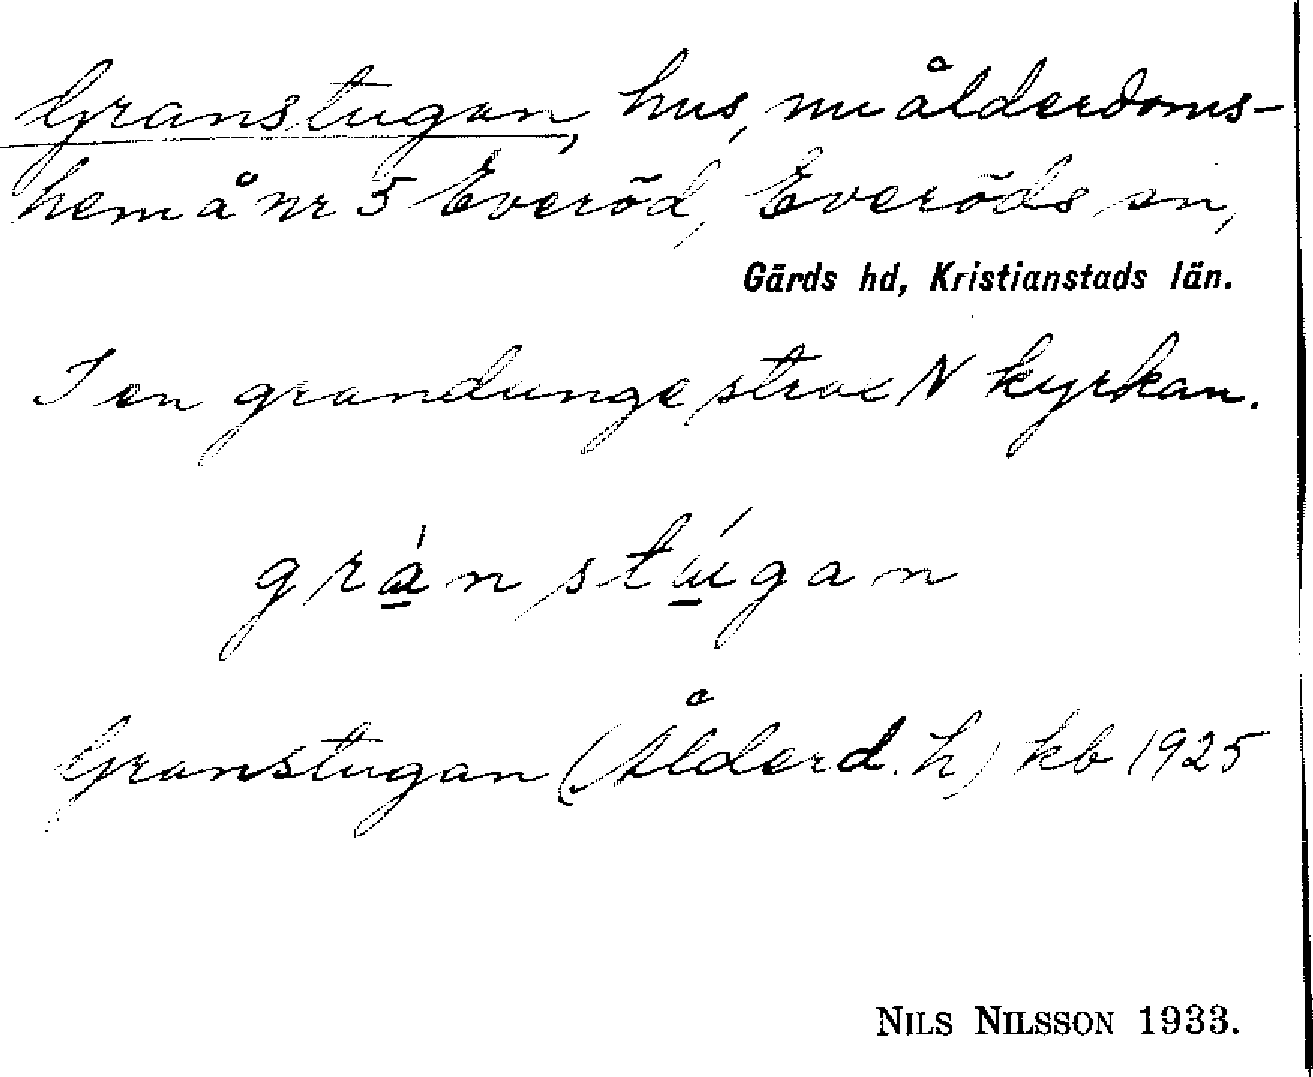 Granstugan, hus, nu ålderdoms-
hem å nr 5 Everöd, Everöds sn,
Gärds hd, Kristianstads län.
I en grandunge strax N kyrkan.
grá̱nstú̱gan
Granstugan (Ålderd. h) kb 1925
NILS NILSSON 1933.